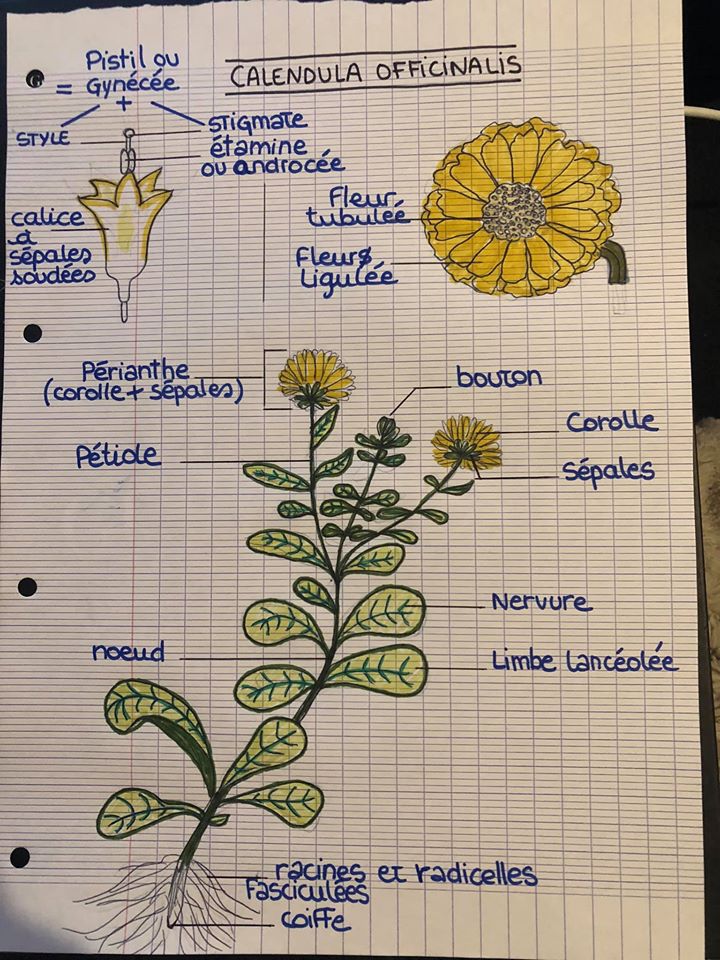 CALENDULA OFFICINALIS
Pistil ou
= Gynécée
+
STYLE
Stigmate
étamine
ou androcée
calice
à
sépales
soudées
Fleur
tubulée
Fleurs
Ligulée
Périanthe
(corolle + sépales)
bouton
Corolle
Pétiole
Sépales
Nervure
noeud
Limbe lancéolée
racines et radicelles
Fasciculées
coiffe